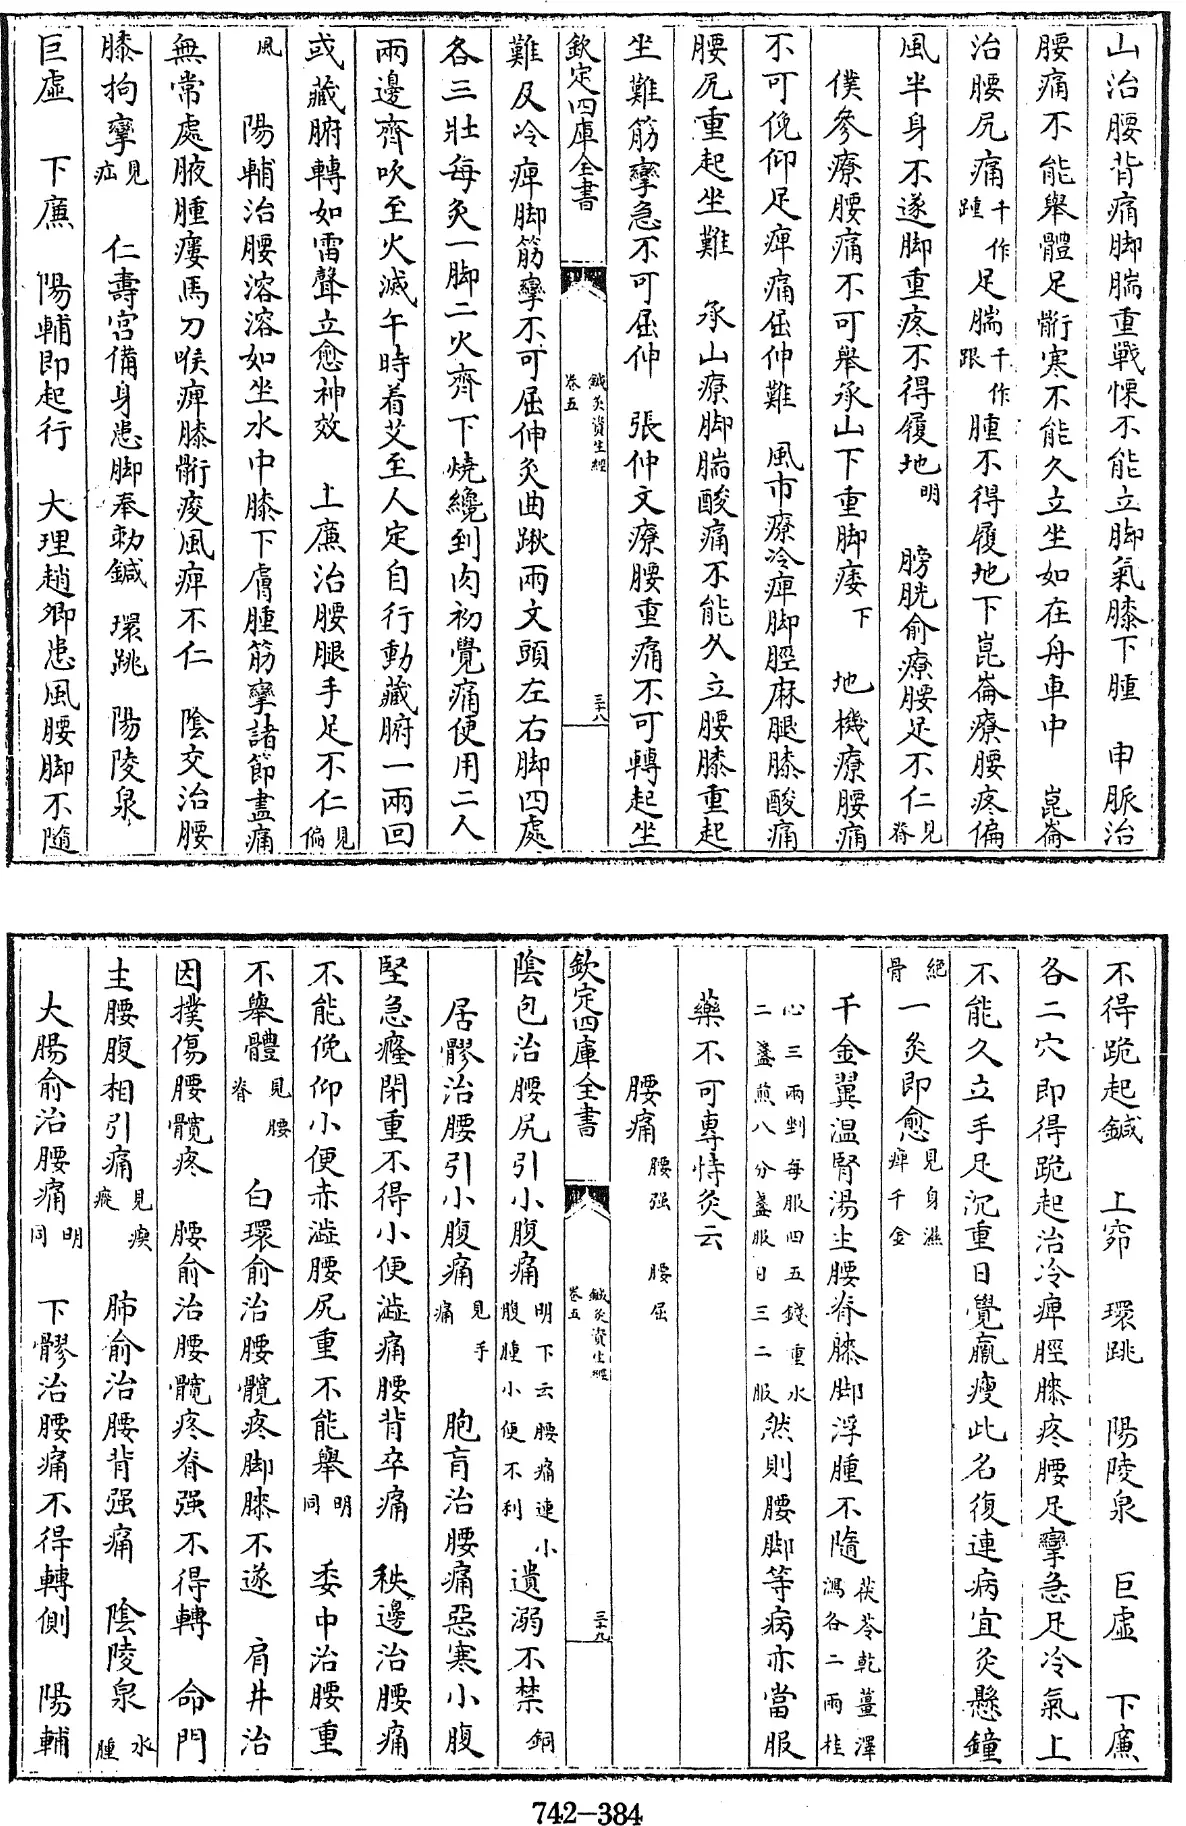 山治腰背痛脚腨重戰慄不能立脚氣膝下腫　申脈治
腰痛不能舉體足䯒寒不能久立坐如在舟車中　崑崙
治腰尻痛千作踵足腨千作跟腫不得履地下崑崙療腰疼偏
風半身不遂脚重疼不得履地明　膀胱俞療腰足不仁見脊
僕參療腰痛不可舉承山下重脚痿下　地機療腰痛
不可俛仰足痺痛屈伸難　風市療冷痺脚脛麻腿膝酸痛
腰尻重起坐難　承山療脚腨酸痛不能久立腰膝重起
坐難筋攣急不可屈伸　張仲文療腰重痛不可轉起坐
欽定四庫全書　鍼灸資生經卷五　三十八
難及冷痺脚筋攣不可屈伸灸曲踿兩文頭左右脚四處
各三壯每灸一脚二火齊下燒纔到肉初覺痛便用二人
兩邊齊吹至火滅午時着艾至人定自行動藏腑一兩回
或藏腑轉如雷聲立愈神效　上廉治腰腿手足不仁見偏
風　陽輔治腰溶溶如坐水中膝下膚腫筋攣諸節盡痛
無常處腋腫瘻馬刀喉痺膝䯒痠風痺不仁　陰交治腰
膝拘攣見疝　仁壽宮備身患脚奉勅鍼　環跳　陽陵泉
巨虛　下廉　陽輔即起行　大理趙卿患風腰脚不隨
不得跪起鍼　上窌　環跳　陽陵泉　巨虛　下廉
各二穴即得跪起治冷痺脛膝疼腰足攣急足冷氣上
不能久立手足沉重日覺羸瘦此名復連病宜灸懸鐘
絕骨一灸即愈見身濕痺千金
千金翼溫腎湯主腰脊膝脚浮腫不隨茯苓乾薑澤瀉各二兩桂
心三兩剉每服四五錢重水二盞煎八分盞服日三二服然則腰脚等病亦當服
藥不可專恃灸云
腰痛　腰强　腰屈
欽定四庫全書　鍼灸資生經卷五　三十九
陰包治腰尻引小腹痛明下云腰痛連小腹腫小便不利遺溺不禁銅
居髎治腰引小腹痛見手痛　胞肓治腰痛惡寒小腹
堅急癃閉重不得小便澁痛腰背卒痛　秩邊治腰痛
不能俛仰小便赤澁腰尻重不能舉明同　委中治腰重
不舉體見腰脊　白環俞治腰髖疼脚膝不遂　肩井治
因撲傷腰髖疼　腰俞治腰髖疼脊强不得轉　命門
主腰腹相引痛見瘈瘲　肺俞治腰背强痛　陰陵泉水腫
大腸俞治腰痛明同　下髎治腰痛不得轉側　陽輔
742-384